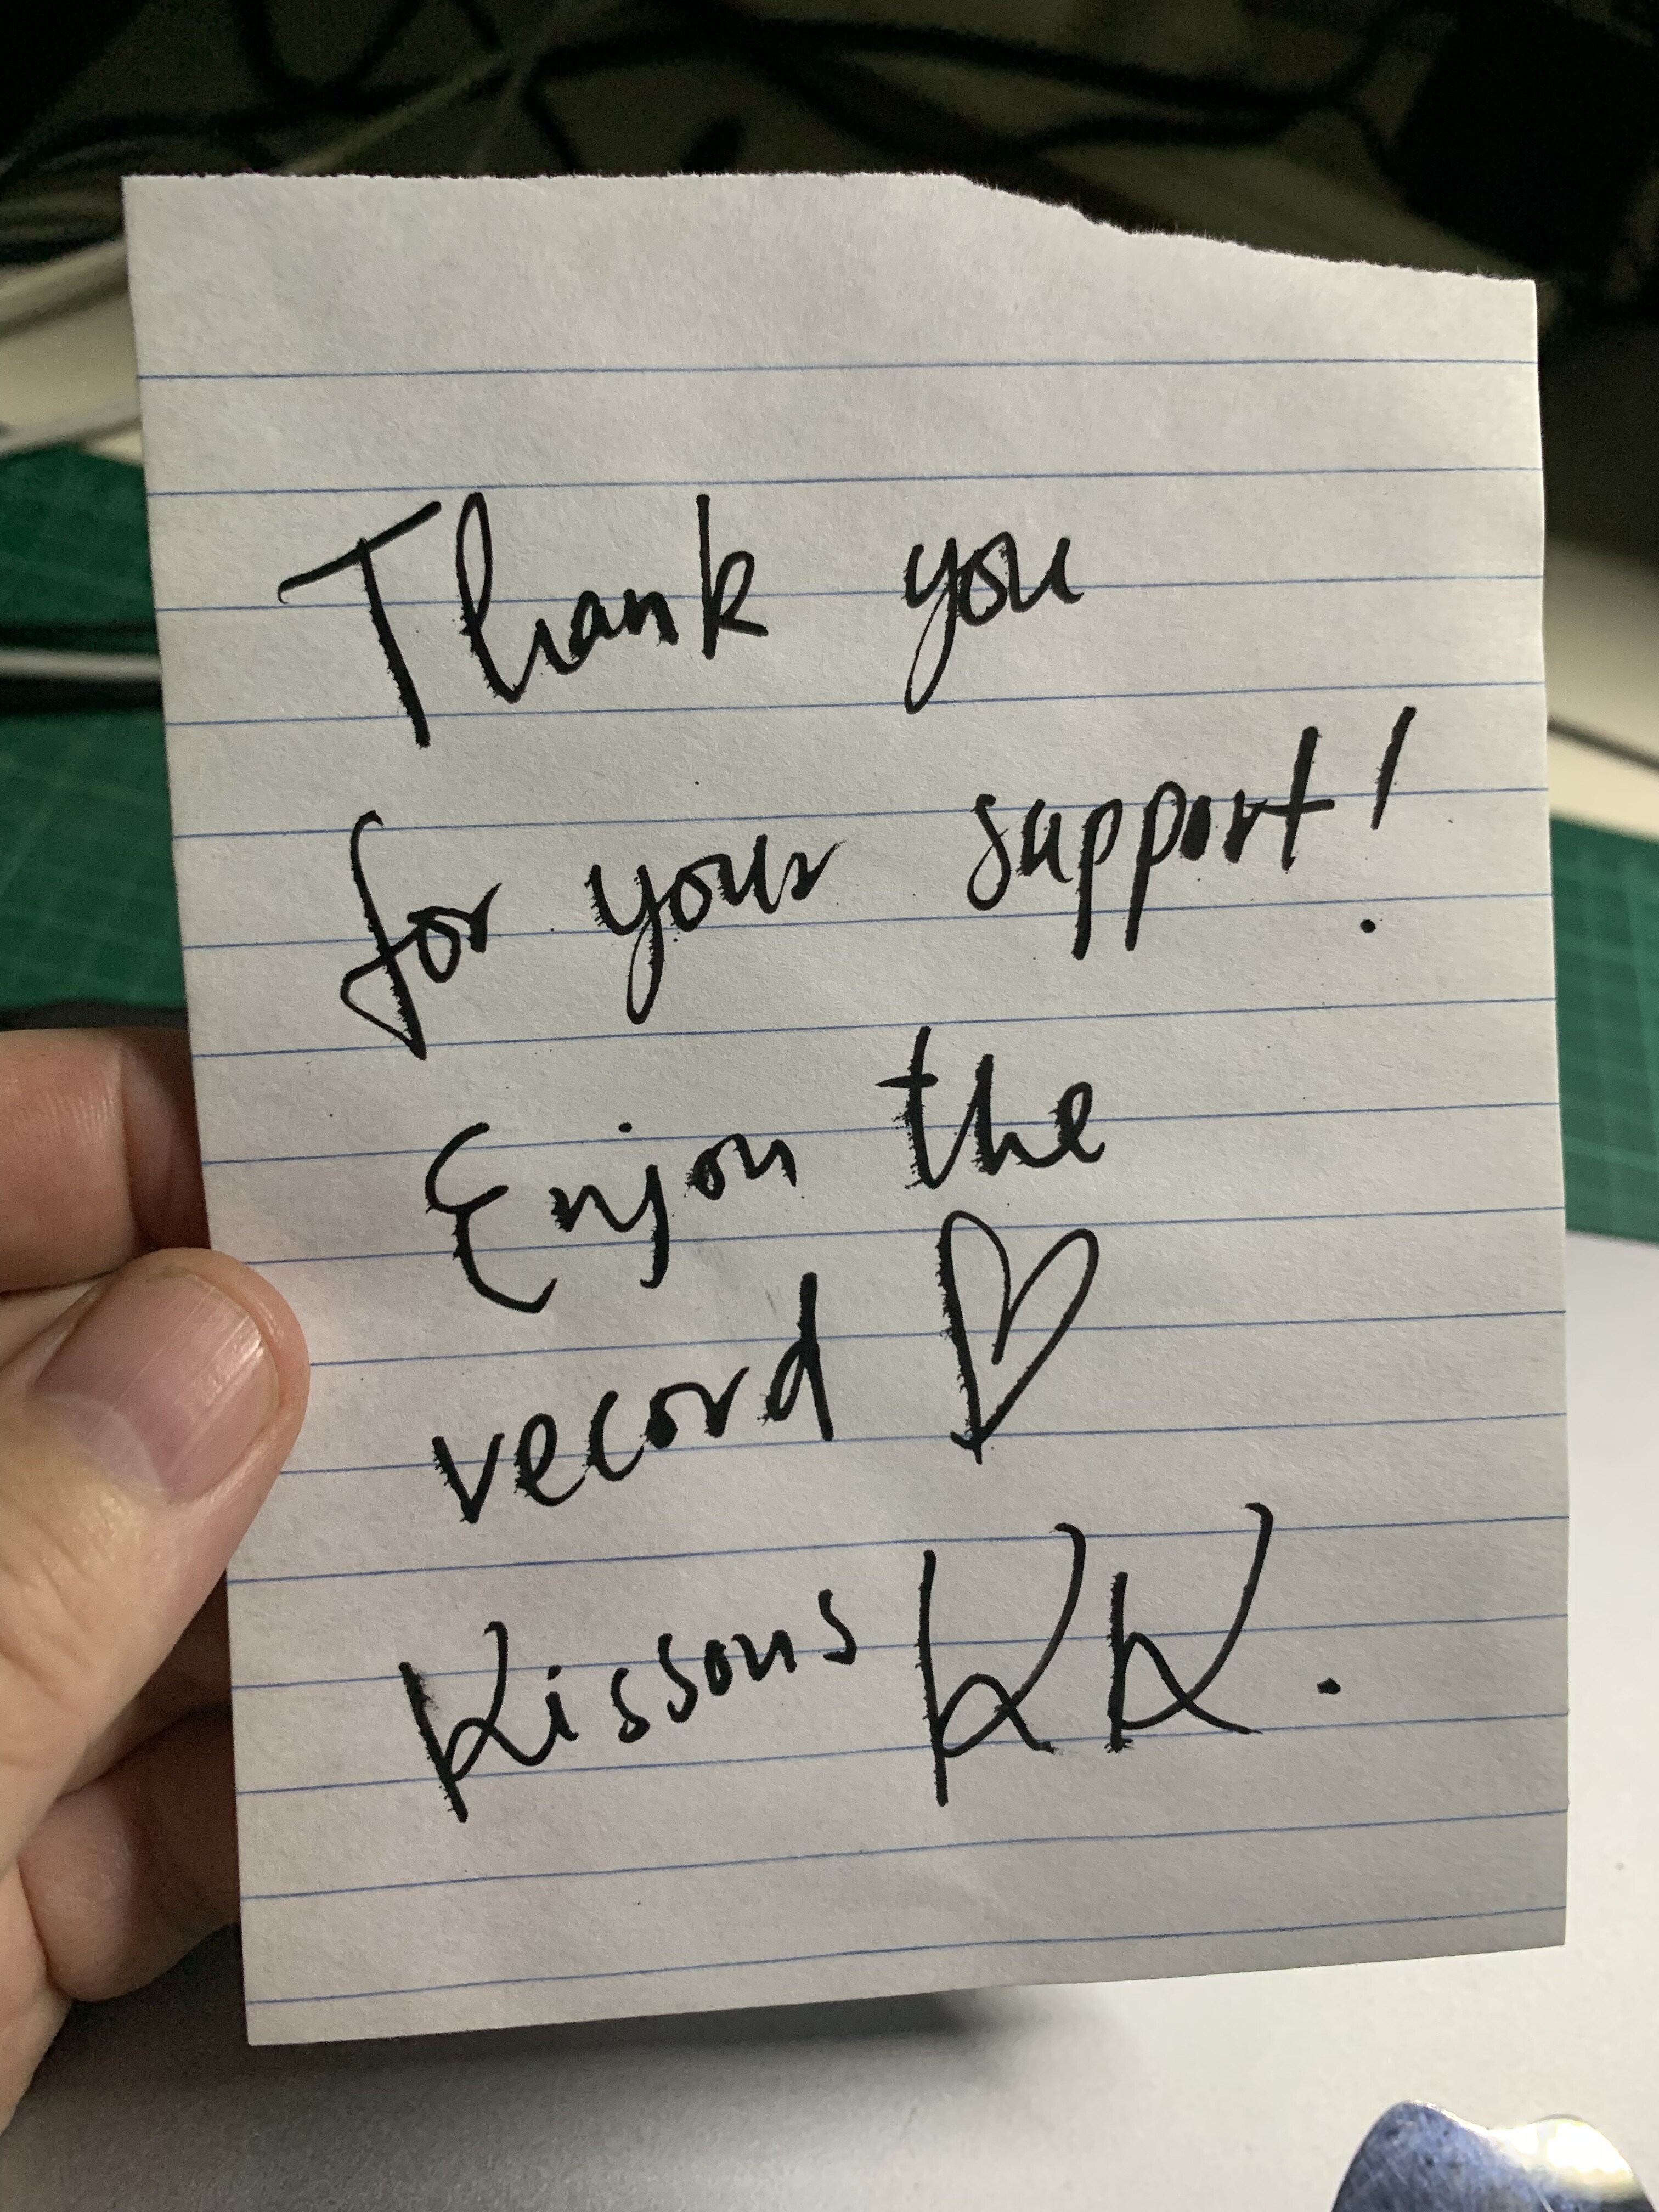 Thank you
for your support!
Enjoy the
record ♡
Kissons KK.